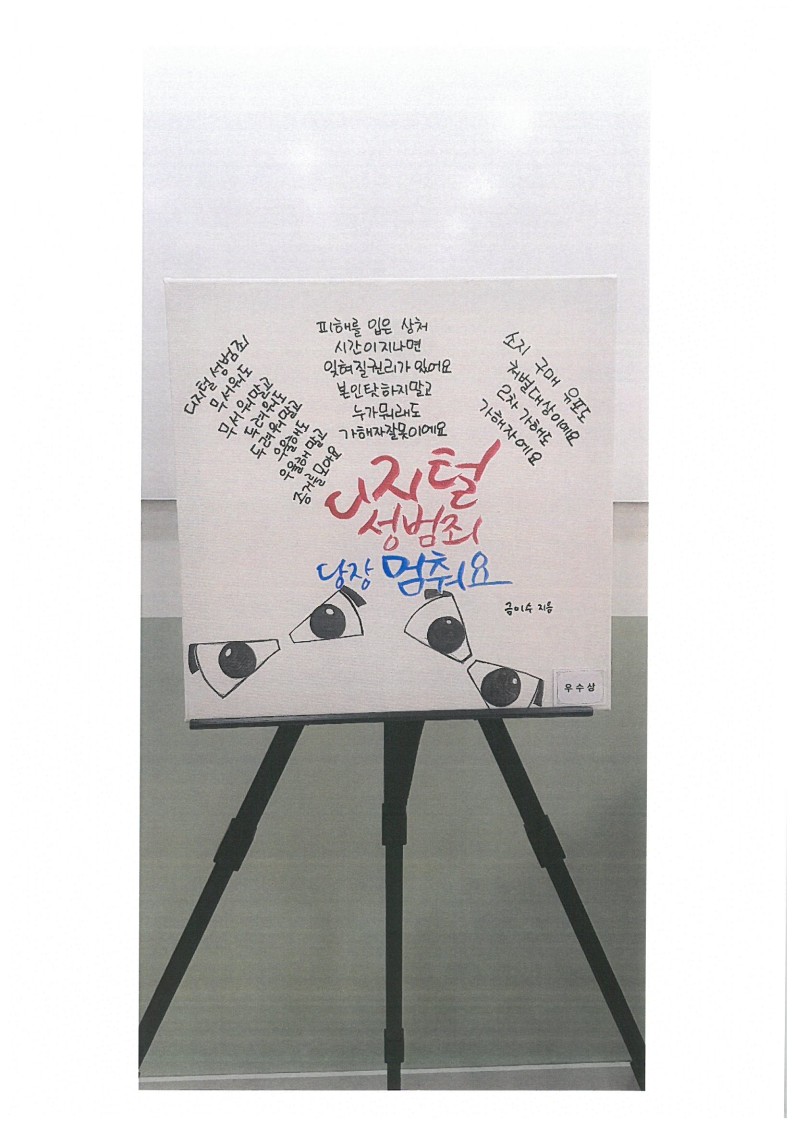 디지털 성범죄
무서워도
무서워말고
두려워도
두려워말고
우울해도
우울해 말고
증거를모아요
피해를 입은 상처
시간이지나면
잊혀질권리가있어요
본인탓하지말고
누가뭐래도
가해자잘못이에요
소지 구매 유포도
처벌대상이예요
2차 가해도
가해자예요
디지털
성범죄
당장 멈춰요
금이수 지음
우수상